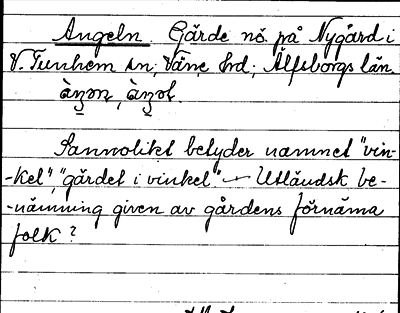 Angeln. Gärde nö. på Nygård i
V. Tunhem sn; Väne hrd; Älfsborgs län.
Sannolikt betyder namnet "vin-
-kel", "gärdet i vinkel" — Utländsk be-
-nämning given av gårdens förnäma
folk?